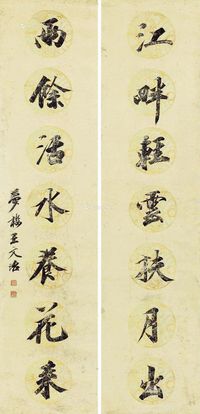 江畔輕雲扶月出
雨餘活水養花來
夢樓王文治